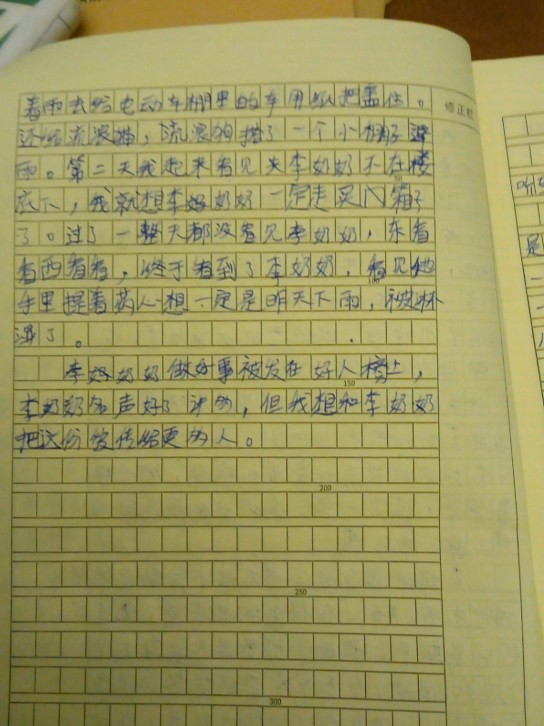 着雨去给电动车棚里的车用纸把盖住。
修正栏
还给流浪猫,流浪狗搭了一个小棚子避
雨。第二天我起来看见李奶奶不在楼
底下,我就想李奶奶一定走
了。过了一整天都没看见李奶奶,东看
看西看看,终于看到了李奶奶,看见她
手里提着药心想一定是昨天下雨,被淋
湿了。
李奶奶做好事被发在好人榜上,
150
李奶奶名声好了许多,但我想和李奶奶
把这份爱传给更多人。
200
250
300